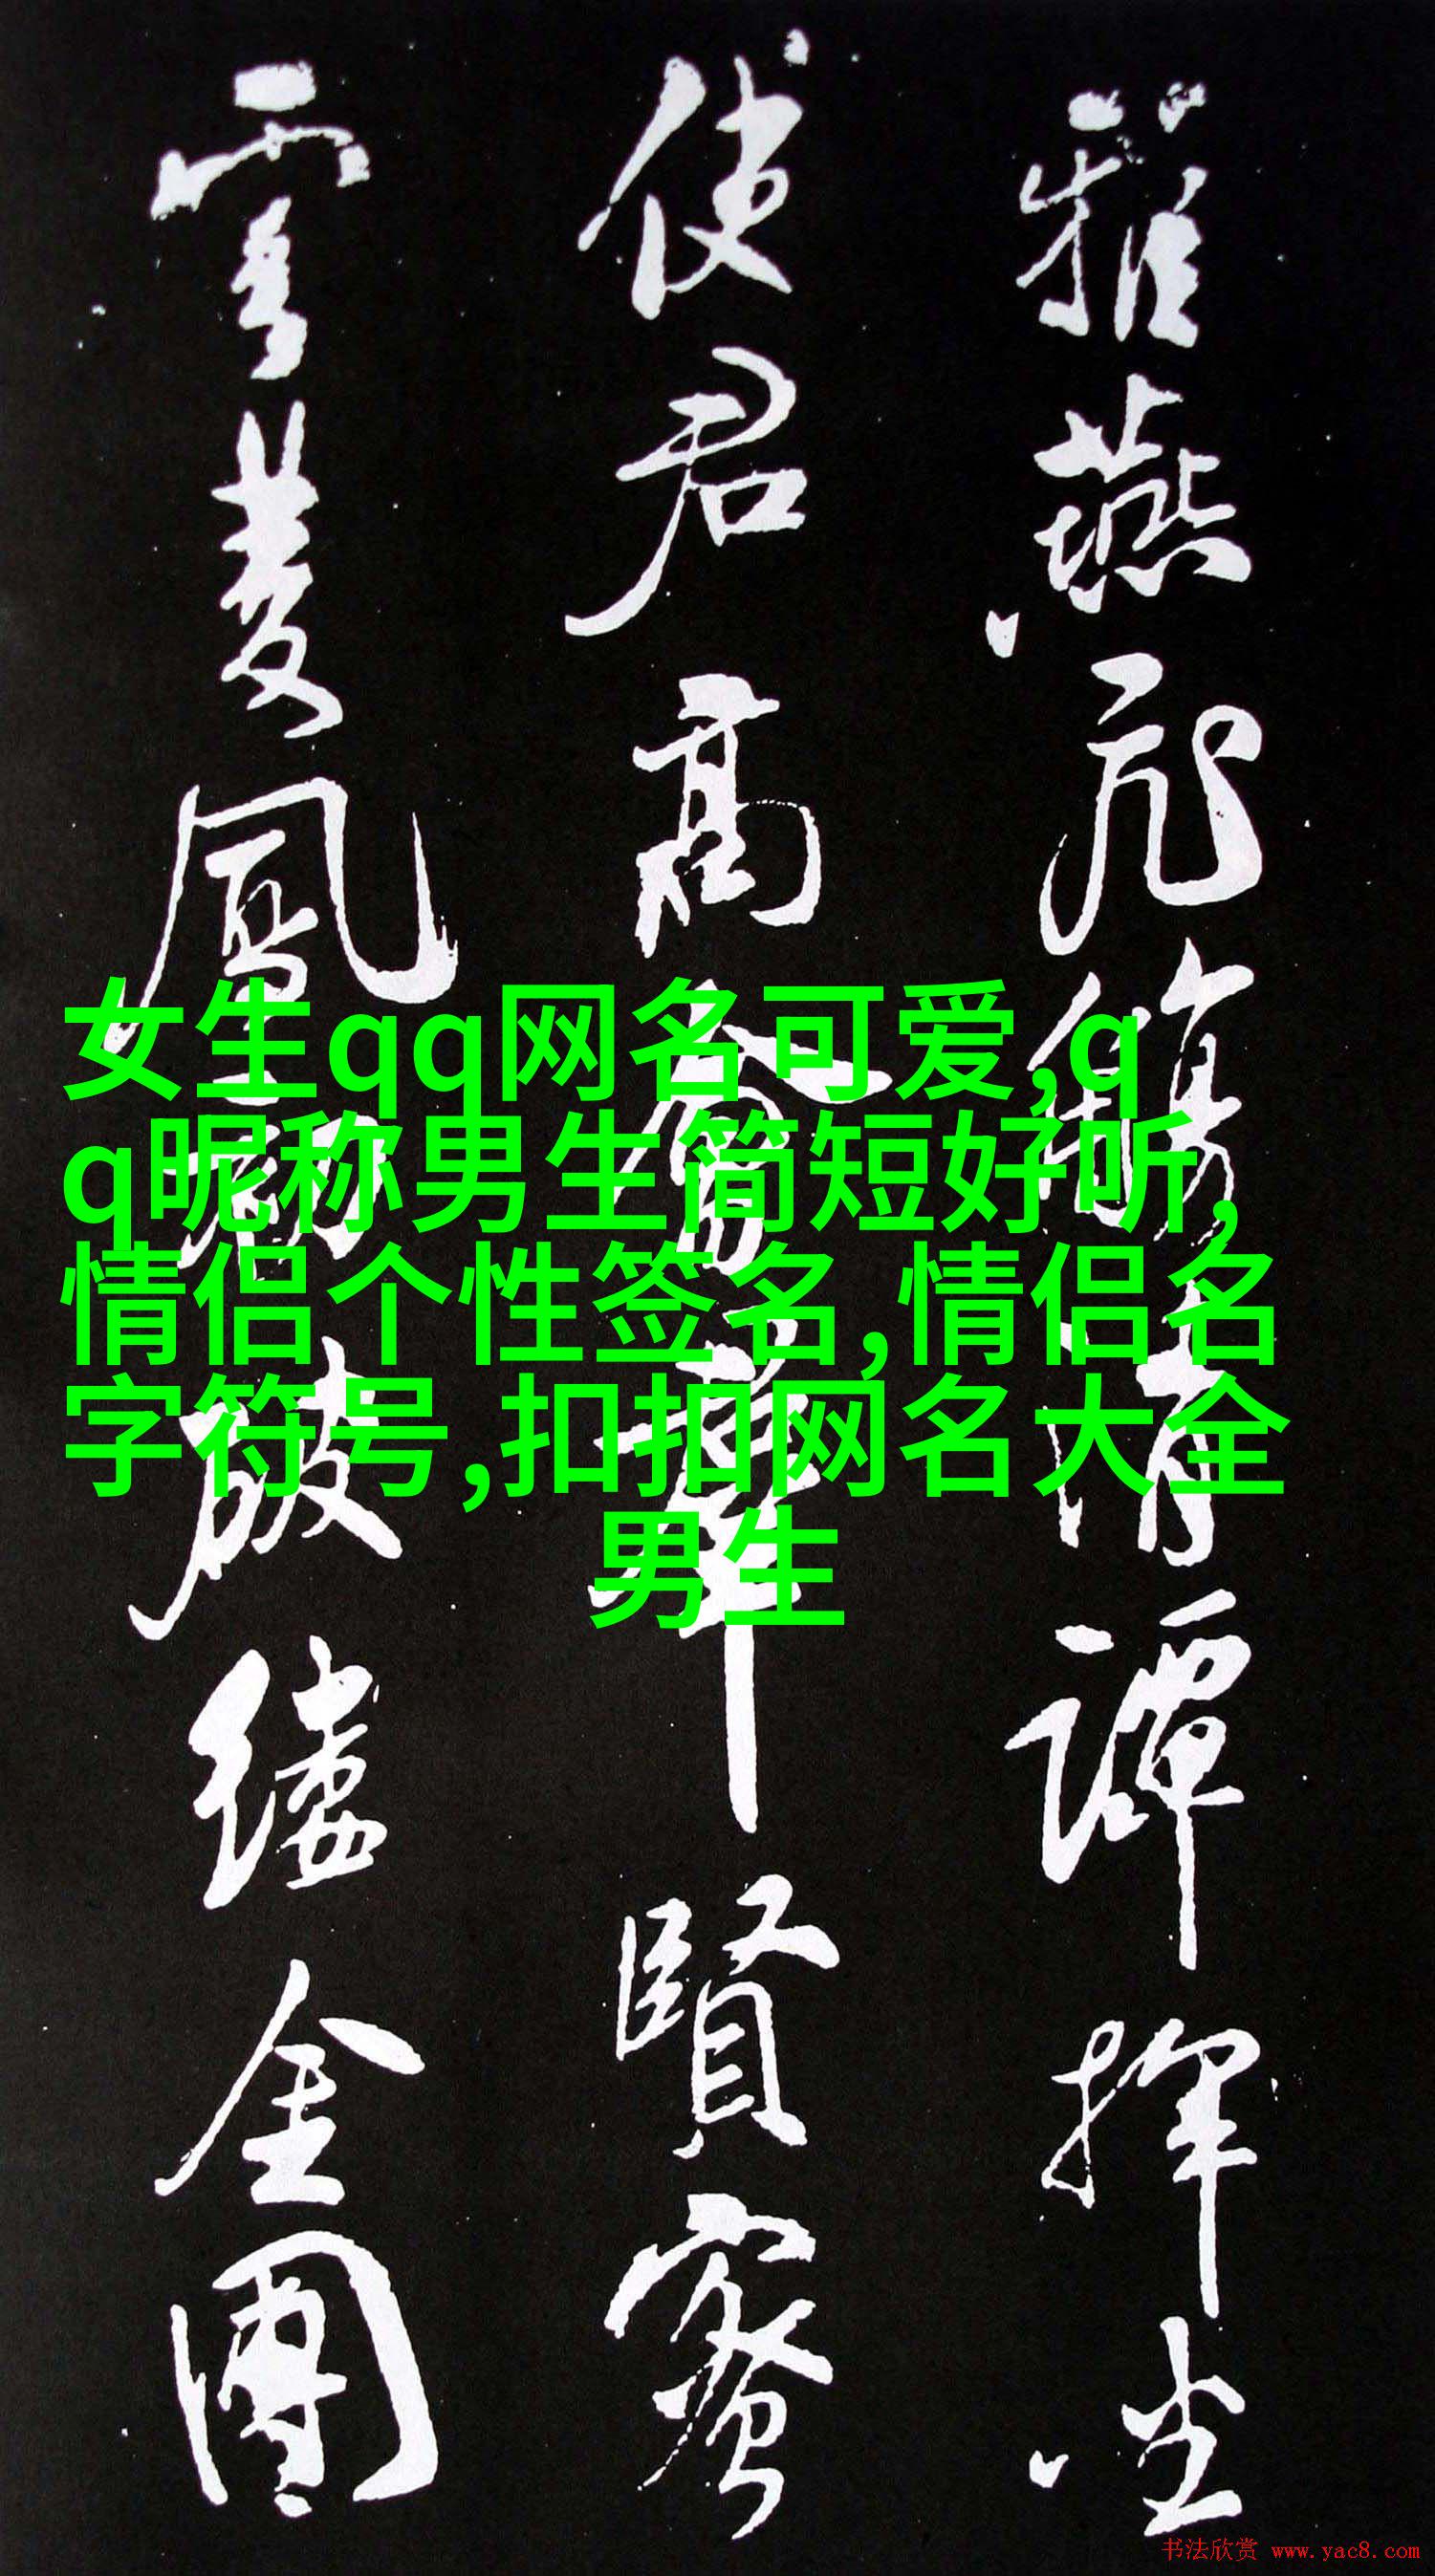 女生qq网名可爱,q
q昵称男生简短好听,
情侣个性签名,情侣名
字符号,扣扣网名大全
男生
雅燕飛觴清譚揮坐
使君高會羣賢密
雲雙鳳初破縷金團
书法欣赏 www.yac8.com